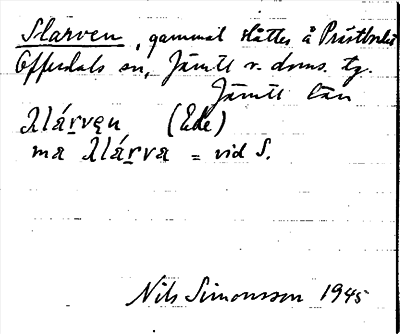 Slarven, gammal slåtter å Prästbordet
Offerdals sn, Jämtl v. doms. tg.
Jämtl län
Slárven (Ede)
ma Slárva = vid S.
Nils Simonsson 1945